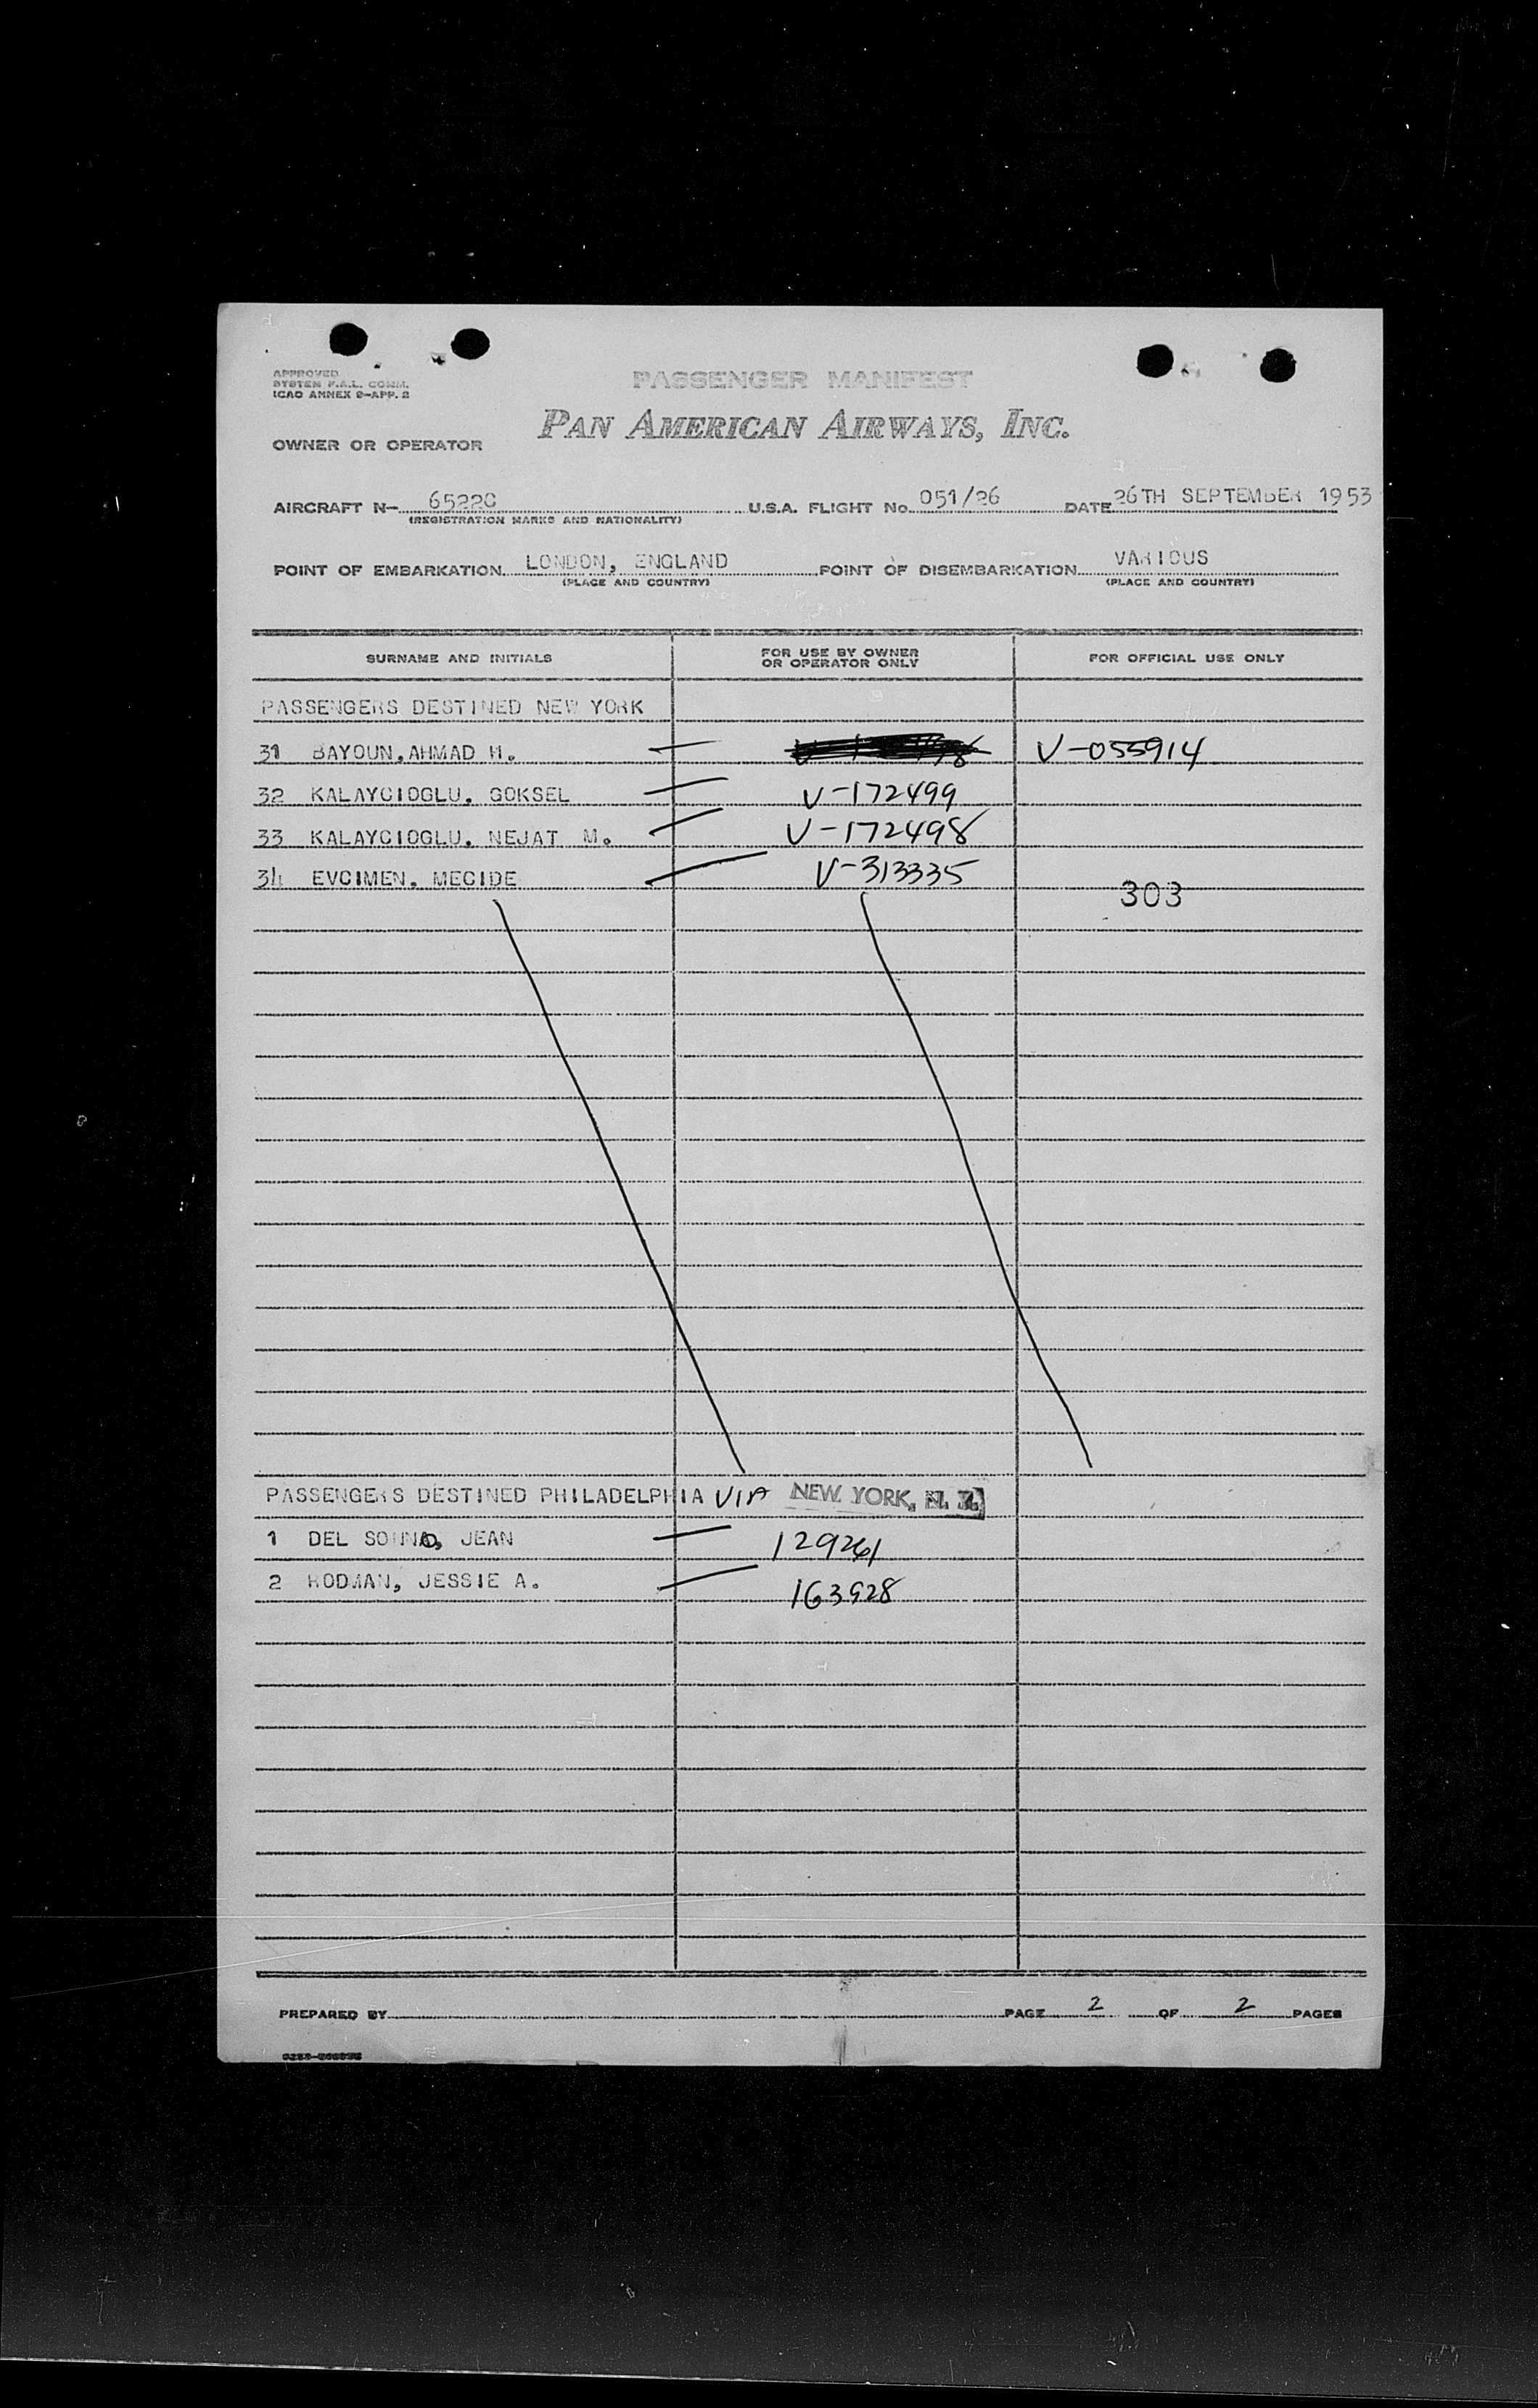 APPROVED
SYSTEM F.A.L. COMM.
ICAO ANNEX 9-APP. 2
PASSENGER MANIFEST
PAN AMERICAN AIRWAYS, INC.
OWNER OR OPERATOR
AIRCRAFT N- 6522C U.S.A. FLIGHT NO. 051/26 DATE 26TH SEPTEMBER 1953
(REGISTRATION MARKS AND NATIONALITY)
POINT OF EMBARKATION LONDON, ENGLAND POINT OF DISEMBARKATION VARIOUS
(PLACE AND COUNTRY) (PLACE AND COUNTRY)
SURNAME AND INITIALS FOR USE BY OWNER OR OPERATOR ONLY FOR OFFICIAL USE ONLY
PASSENGERS DESTINED NEW YORK
31 BAYOUN, AHMAD H. V-055914
32 KALAYCIOGLU, GOKSEL V-172499
33 KALAYCIOGLU, NEJAT M. V-172498
34 EVCIMEN, MECIDE V-313335
303
PASSENGERS DESTINED PHILADELPHIA VIA NEW YORK, N. Y.
1 DEL JEAN 129261
2 RODMAN, JESSIE A. 163928
PREPARED BY PAGE 2 OF 2 PAGES